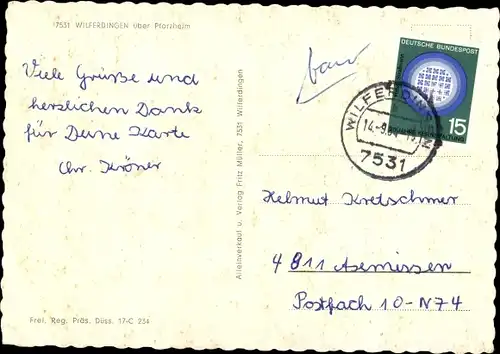 7531 WILFERDINGEN über Pforzheim
Viele Grüße und
herzlichen Dank
für Deine Karte
Chr. Kröner
Frei. Reg. Präs. Düss. 17-C 234
Alleinverkauf u. Verlag Fritz Müller, 7531 Wilferdingen
DEUTSCHE BUNDESPOST
15
WILFERDINGEN
7531
Helmut Kretschmer
4811 Asemissen
Postfach 10-N74